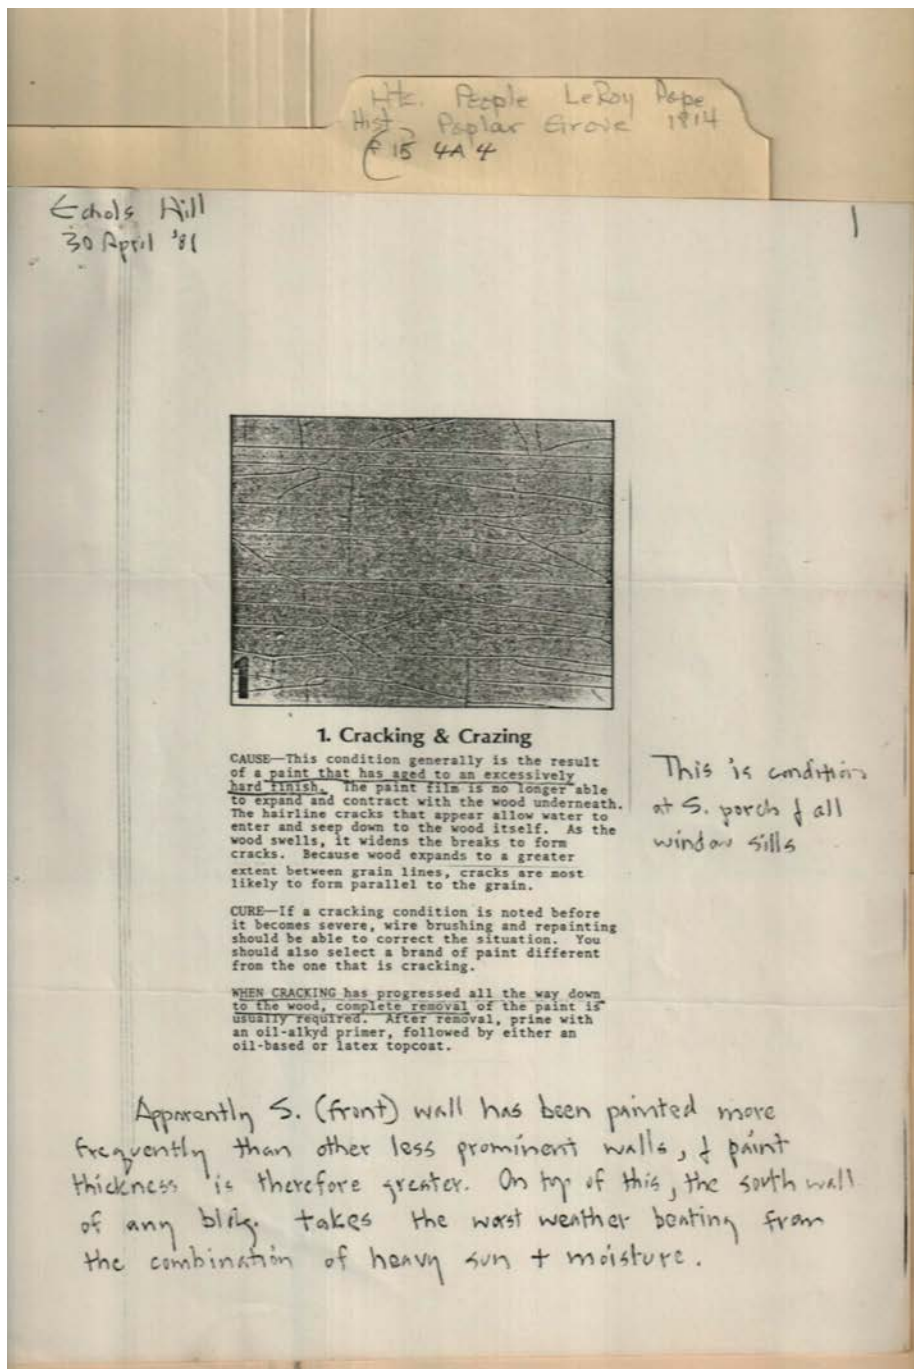 Htc. People LeRoy Pope
Hist Poplar Grove 1814
F 15 4A 4
Echols Hill
30 April '81
1
1
1. Cracking & Crazing
CAUSE—This condition generally is the result
of a paint that has aged to an excessively
hard finish. The paint film is no longer able
to expand and contract with the wood underneath.
The hairline cracks that appear allow water to
enter and seep down to the wood itself. As the
wood swells, it widens the breaks to form
cracks. Because wood expands to a greater
extent between grain lines, cracks are most
likely to form parallel to the grain.
This is condition
at S. porch & all
window sills
CURE—If a cracking condition is noted before
it becomes severe, wire brushing and repainting
should be able to correct the situation. You
should also select a brand of paint different
from the one that is cracking.
WHEN CRACKING has progressed all the way down
to the wood, complete removal of the paint is
usually required. After removal, prime with
an oil-alkyd primer, followed by either an
oil-based or latex topcoat.
Apparently S. (front) wall has been painted more
frequently than other less prominent walls, & paint
thickness is therefore greater. On top of this, the south wall
of any bldg. takes the worst weather beating from
the combination of heavy sun + moisture.